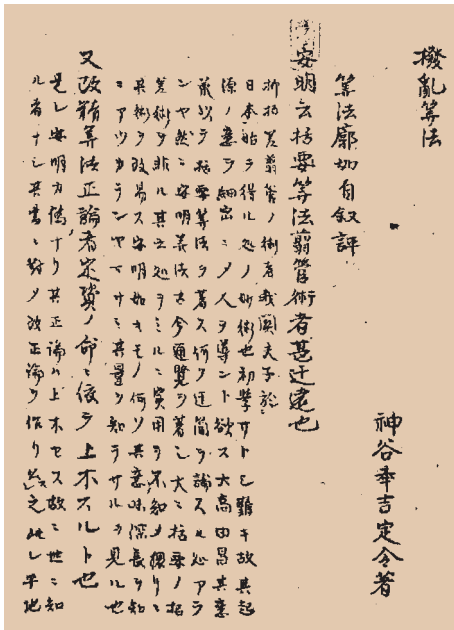 撥亂算法
神谷奉吉定令著
算法廓如自叙評
安明云括要算法翦管術者甚迂遠也
術招差翦管ノ術者我関夫子於
日本始テ得ル処ノ妙術也初学サトシ難キ故其起
源ノ意ヲ細密ニシメ人ヲ導ント欲ス大高由昌其意
ヲ以テ括要算法ヲ著ス何ソ迂簡ヲ論スル処アラ
ンヤ然ニ安明算法古今通覧ヲ著シ大ニ括要ノ招
差術ヲ非ル其立処ヲミルニ実用ヲ不知メ猥リニ
其術ヲ改易ス安明如キモノ何ソ其意味深長ヲ知
ニアツカランヤマサニ其量ヲ知ラサルヲ見ル也
又改精算法正論者定資ノ命ニ依テ上木スルト也
是レ安明カ偽ナリ其正論ハ上木セス故ニ世ニ知
ル者ナシ其書ニ対メ改正論ヲ作リ之此レ平地